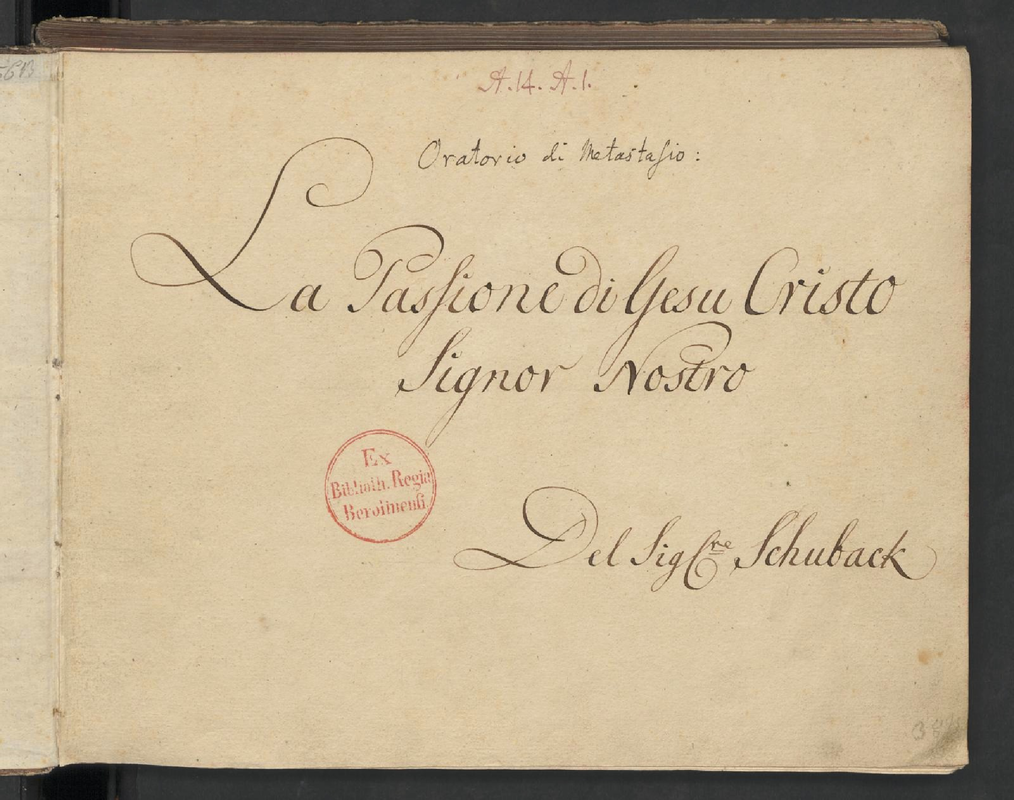 A.14. A.1.
Oratorio di Metastasio:
La Passione di Gesu Cristo
Signor Nostro
Ex
Biblioth. Regia
Berolinensi
Del Sig.re Schuback